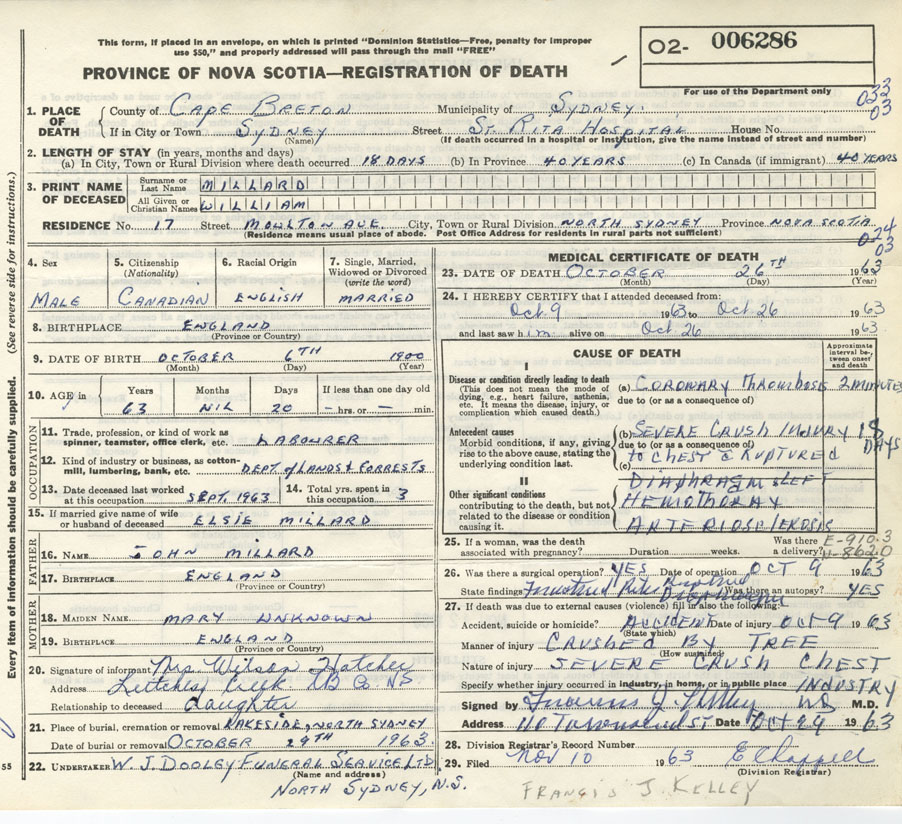 This form, if placed in an envelope, on which is printed "Dominion Statistics—Free, penalty for improper
use $50," and properly addressed will pass through the mail "FREE"
O2- 006286
PROVINCE OF NOVA SCOTIA—REGISTRATION OF DEATH
For use of the Department only
033
03
1. PLACE OF DEATH County of CAPE BRETON Municipality of SYDNEY.
If in City or Town SYDNEY Street ST. RITA HOSPITAL House No.
(Name) (If death occurred in a hospital or institution, give the name instead of street and number)
2. LENGTH OF STAY (in years, months and days)
(a) In City, Town or Rural Division where death occurred 18 DAYS (b) In Province 40 YEARS (c) In Canada (if immigrant) 40 YEARS
3. PRINT NAME OF DECEASED Surname or Last Name MILLARD
All Given or Christian Names WILLIAM
RESIDENCE No. 17 Street MOULTON AVE City, Town or Rural Division NORTH SYDNEY Province NOVA SCOTIA
(Residence means usual place of abode. Post Office Address for residents in rural parts not sufficient)
024
03
4. Sex MALE
5. Citizenship (Nationality) CANADIAN
6. Racial Origin ENGLISH
7. Single, Married, Widowed or Divorced (write the word) MARRIED
8. BIRTHPLACE ENGLAND
(Province or Country)
9. DATE OF BIRTH OCTOBER 6TH 1900
(Month) (Day) (Year)
10. AGE in Years Months Days If less than one day old
63 NIL 20 – hrs. or — min.
OCCUPATION
11. Trade, profession, or kind of work as spinner, teamster, office clerk, etc. LABOURER
12. Kind of industry or business, as cotton-mill, lumbering, bank, etc. DEPT. of LANDS & FORRESTS
13. Date deceased last worked at this occupation SEPT. 1963 14. Total yrs. spent in this occupation 3
15. If married give name of wife or husband of deceased ELSIE MILLARD
FATHER
16. NAME JOHN MILLARD
17. BIRTHPLACE ENGLAND
(Province or Country)
MOTHER
18. MAIDEN NAME MARY UNKNOWN
19. BIRTHPLACE ENGLAND
(Province or Country)
20. Signature of informant Mrs. Wilson
Address Creek CB Co NS
Relationship to deceased daughter
21. Place of burial, cremation or removal LAKESIDE, NORTH SYDNEY
Date of burial or removal OCTOBER 29TH 1963.
22. UNDERTAKER W. J. DOOLEY FUNERAL SERVICE LTD.
(Name and address)
NORTH SYDNEY, N.S.
MEDICAL CERTIFICATE OF DEATH
23. DATE OF DEATH OCTOBER 26TH 1963
(Month) (Day) (Year)
24. I HEREBY CERTIFY that I attended deceased from:
Oct. 9 1963 to Oct. 26 1963
and last saw him alive on Oct 26 1963
CAUSE OF DEATH
Approximate interval between onset and death
I
Disease or condition directly leading to death (This does not mean the mode of dying, e.g., heart failure, asthenia, etc. It means the disease, injury, or complication which caused death.)
(a) CORONARY THROMBOSIS 2 MINUTES
due to (or as a consequence of)
Antecedent causes
Morbid conditions, if any, giving rise to the above cause, stating the underlying condition last.
(b) SEVERE CRUSH INJURY 18 DAYS
due to (or as a consequence of)
(c) TO CHEST C RUPTURED
DIAPHRAGM LEFT
II
Other significant conditions contributing to the death, but not related to the disease or condition causing it.
HEMOTHORAX
ARTERIOSCLEROSIS
25. If a woman, was the death associated with pregnancy? Duration weeks. Was there a delivery?
E-910.3
N-862.0
26. Was there a surgical operation? YES Date of operation OCT 9 1963
State findings Ruptured Diaphragm Was there an autopsy? YES
27. If death was due to external causes (violence) fill in also the following:
Accident, suicide or homicide? ACCIDENT Date of injury Oct 9 1963
(State which)
Manner of injury CRUSHED BY TREE
(How sustained)
Nature of injury SEVERE CRUSH CHEST
Specify whether injury occurred in industry, in home, or in public place INDUSTRY
Signed by Francis J. Kelley M.D.
Address Townsend ST Date Oct 29 1963
28. Division Registrar's Record Number
29. Filed Nov 10 1963 E Chappell
(Division Registrar)
FRANCIS J. KELLEY
Every item of information should be carefully supplied. (See reverse side for instructions.)
55